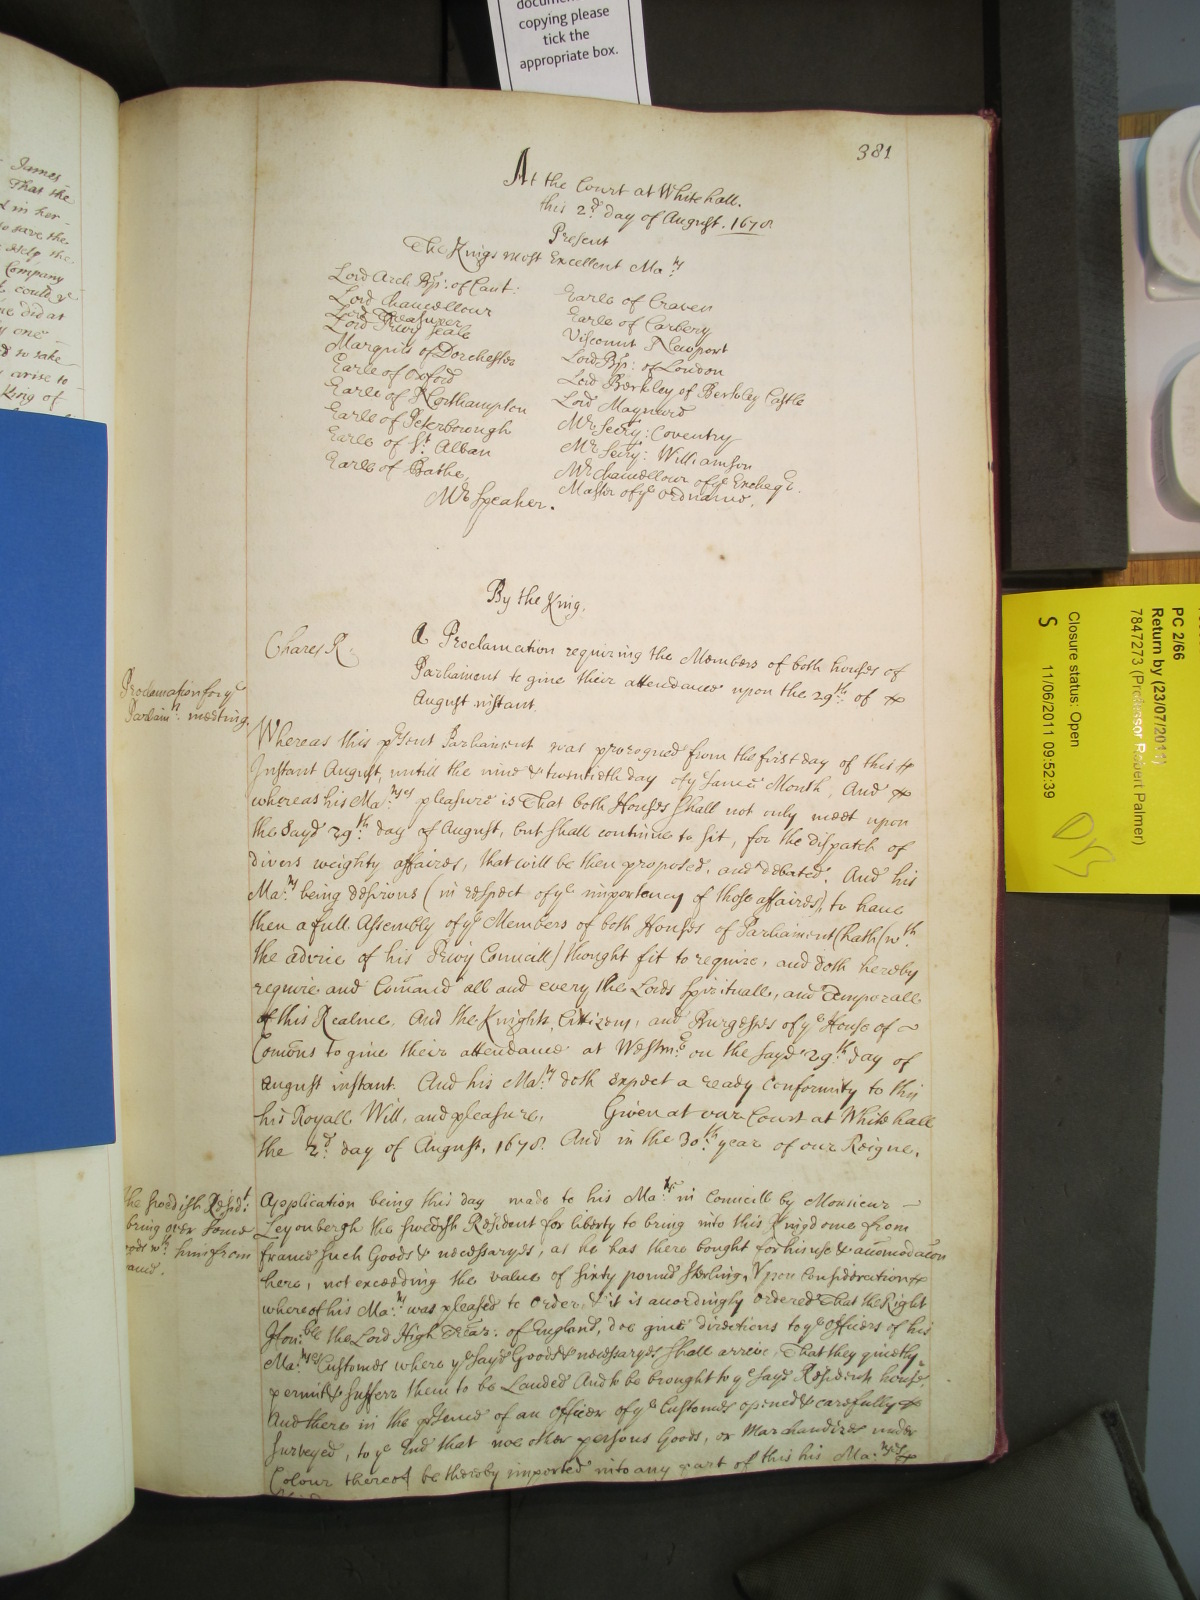 documen
copying please
tick the
appropriate box.
381
At the Court at Whitehall.
this 2d. day of August. 1678
Present
The Kings most Excellent Ma:ty
Lord Arch Bp: of Cant:
Lord Chancellour
Lord Treasurer
Lord Privy Seale
Marquis of Dorchester
Earle of Oxford
Earle of Northampton
Earle of Peterborough
Earle of St. Alban
Earle of Bathe
Earle of Craven
Earle of Carbery
Viscount Newport
Lord Bp: of London
Lord Berkley of Berkley Castle
Lord Maynard
Mr Secry: Coventry
Mr Secry: Williamson
Mr Chancellour of ye Excheqr.
Master of ye Ordnance.
Mr Speaker.
By the King.
Charles R
A Proclamation requiring the Members of both houses of
Parliament to give their attendance upon the 29th of
August instant.
Proclamation for ye
Parliamt: meeting.
Whereas this pSent Parliament was prorogued from the first day of this
Instant August, untill the nine & twentieth day of ye same Month, And
whereas his Ma:ties pleasure is That both Houses shall not only meet upon
the Sayd 29th: day of August, but shall continue to sit, for the dispatch of
divers weighty affaires, that will be then proposed, and debated. And his
Ma:ty being desirous (in respect of ye importancy of those affaires), to have
then a full Assembly of ye Members of both Houses of Parliament (hath (wth.
the advice of his Privy Councill) thought fit to require, and doth hereby
require and Comand all and every the Lords Spirituall, and Temporall
of this Realme, And the Knights, Citizens, and Burgesses of ye House of ~
Comons to give their attendance at Westmr. on the sayd 29th day of
August instant. And his Ma:ty doth expect a ready Conformity to this
his Royall Will, and pleasure. Given at our Court at Whitehall
the 2d. day of August, 1678. And in the 30th: year of our Reigne.
the Swedish Residt:
bring over Some
oods wth. him from
rance.
Application being this day made to his Ma:ty in Councill by Monsieur
Leyonbergh the Swedish Resident for liberty to bring into this Kingdome from
France such Goods & necessaryes, as he has there bought for his use & accomodacon
here, not exceeding the value of sixty pound sterling, Upon Consideration
whereof his Ma:ty was pleased to order, & it is accordingly ordered That the Right
Hon:ble the Lord High Trear: of England, doe give directions to ye Officers of his
Ma:ties Customes where ye Sayd Goods & necessaryes shall arrive, That they quietly
permit & suffer them to be Landed And to be brought to ye Sayd Residents house
And there in the pSence of an Officer of ye Customes opened & carefully
Surveyed, to ye End that noe other persons Goods, or Marchandizes under
Colour thereof be thereby imported into any part of this his Ma:ties
James
That the
in her
to save the
Help the
Company
could ye
he did at
y one
to take
arise to
King of
PC 2/66
Return by (23/07/2011)
7847273 (Professor Robert Palmer)
Closure status: Open
S 11/06/2011 09:52:39